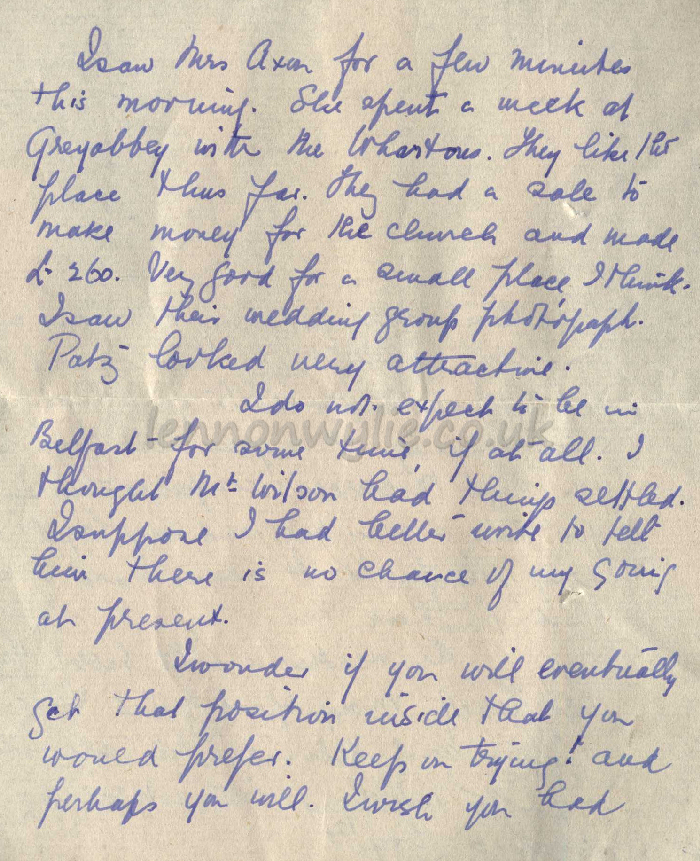 I saw Mrs Axon for a few minutes
this morning. She spent a week at
Greyabbey with the Whartons. They like the
place thus far. They had a sale to
make money for the church and made
£260. Very good for a small place, I think.
I saw their wedding group photograph.
Patz looked very attractive.
I do not expect to be in
lennonwylie.co.uk
Belfast for some time, if at all. I
thought Mr Wilson had things settled.
I suppose I had better write to tell
him there is no chance of my going
at present.
I wonder if you will eventually
get that position inside that you
would prefer. Keep on trying! and
perhaps you will. I wish you had